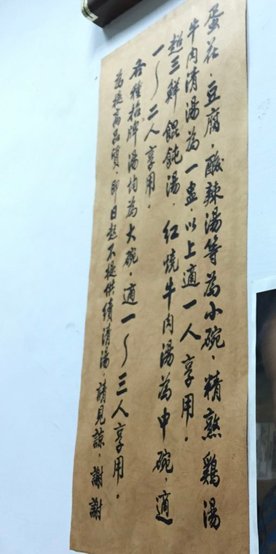 蛋花、豆腐、酸辣湯等為小碗，精熬鷄湯
牛肉清湯為一盅，以上適一人享用。
趙三鮮 餛飩湯、紅燒牛肉湯為中碗，適
一～二人享用。
各種招牌湯均為大碗，適一～三人享用。
為提高品質，即日起不提供續清湯，請見諒，謝謝